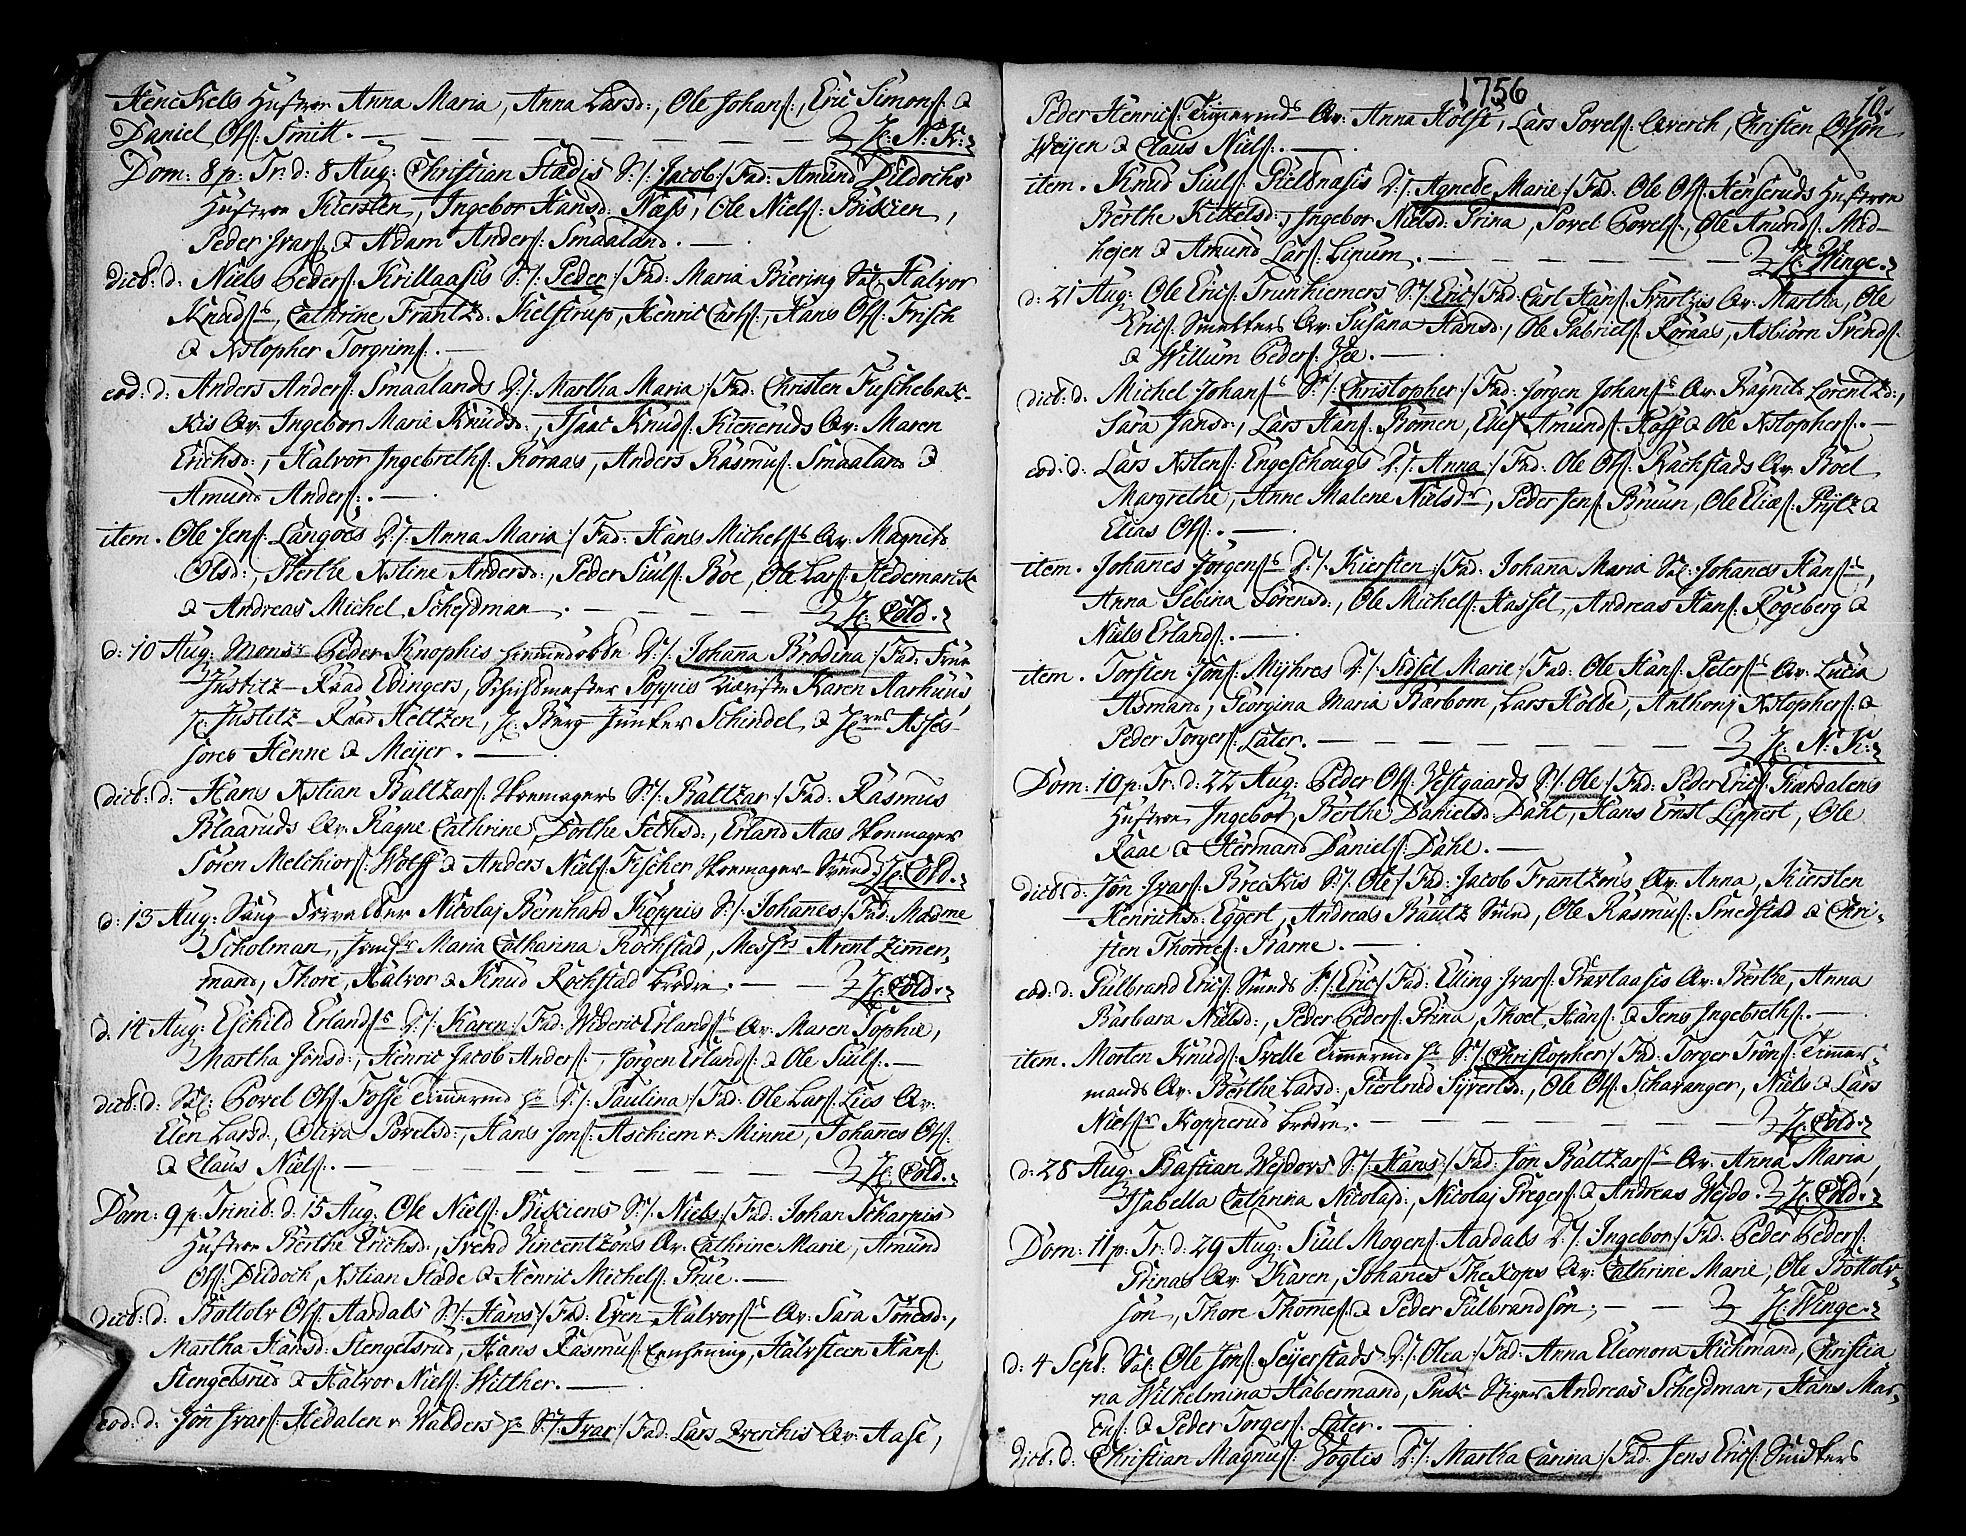 Henickels Hustroe Anna Maria, Anna Larsd:, Ole Johans:, Eric Simons: &
Daniel Ols: Smitt. — H: N: K:
Dom: 8 p: Tr: d: 8 Aug: Christian Stadis S:/: Jacob :/ Fad: Amund Dildochs
Hustroe Kiersten, Ingebor Hansd: Næss, Ole Niels: Bikien,
Peder Ivars: & Adam Anders: Smaaland. —
dict: d: Niels Peders: Krillaasis S:/: Peder :/ Fad: Maria Biering Sal: Halvor
Knuds:, Cathrine Frantzd: Kielstrup, Henric Carls:, Hans Ols: Frisch
& Xstopher Torgrims: —
eod: d: Anders Anders: Smaalands D:/: Martha Maria :/ Fad: Christen Fuschebak-
kis Qv: Ingebor Marie Knudsd:, Isaac Knuds: Kieneruds Qv: Maren
Erichsd:, Halvor Ingebreths: Koraas, Anders Rasmus: Smaaland &
Amund Anders: —
item. Ole Jens: Langoes D:/: Anna Maria :/ Fad: Hans Michels: Qv: Magnild
Olsd:, Berthe Xstine Andersd:, Peder Siuls: Boe, Ole Lars: Hedemark
& Andreas Michel Scheydman. — H: Cold.
d: 10 Aug: Mons: Peder Knophis D:/: Johana Brodina :/ Fad: Frue
Justitz-Raad Edingers, Poppis Karen Aarhuus,
H: Justitz-Raad Heltzen, H: Berg Junker Schindel & H: Asses-
sores Henne & Meyer. —
dict: d: Hans Xstian Baltzars: Skomagers S:/: Baltzar :/ Fad: Rasmus
Blaaruds Qv: Ragne Cathrine, Dorthe Selhsd:, Erland Aas Skomager
Sören Melchiors: Wolff & Anders Niels: Fischer Skomager-Svend. H: Cold.
d: 13 Aug: Saug-Forvalter Nicolaj Bernhard Koppis S:/: Johannes :/ Fad: Madme
Scholman, Maria Catharina Rochstad, Arent Zimer-
mand, Thore, Halvor & Knud Rockstad brödre. — H: Cold.
d: 14 Aug: Eschild Erlands: D:/: Karen :/ Fad: Wideric Erlands: Qv: Maren Sophie,
Martha Jonsd:, Henric Jacob Anders:, Jörgen Erlands: & Ole Siuls: —
dict: d: Sal: Povel Ols: Fosse D:/: Paulina :/ Fad: Ole Lars: Lies Qv:
Elen Larsd:, Oliva Povelsd:, Hans Jons: Aschiem v: Minne, Johanes Ols:
& Claus Niels: — H: Cold.
Dom: 9 p: Trinit: d: 15 Aug: Ole Niels: Bikiens S:/: Niels :/ Fad: Johan Scharpiis
Hustroe Berthe Erichsd:, Svend Vincentzöns Qv: Cathrine Marie, Amund
Ols: Dildoch, Xstian Stade & Henric Michels: Prue. —
dict: d: Bottolv Ols: Aardals S:/: Hans :/ Fad: Even Halvors: Qv: Sara Tönesd:,
Martha Hansd: Stengelsrud, Hans Rasmus:, Halvsteen Hans:
Stengelsrud & Halvor Niels: Witther. —
eod: d: Jon Ivars: Hedalen v: Walders S:/: Ivar :/ Fad: Lars Qverchis Qv: Aase,
1756
10
Peder Henrics: Qv: Anna Holst, Lars Povels: Qverch, Christen Olsön
Weyen & Claus Niels: —
item. Knud Siuls: Gieldnasis D:/: Agnede Marie :/ Fad: Ole Ols: Henseruds Hustroe
Berthe Kittelsd:, Ingebor Nielsd: Prina, Povel Povels:, Ole Amunds: Mod-
heien & Amund Lars: Linum. — H: Winge.
d: 21 Aug: Ole Erics: Trunhiemers S:/: Eric :/ Fad: Carl Hans: Svartzis Qv: Martha, Ole
Erics: Smelters Qv: Susana Hansd:, Ole Gabriels: Koraas, Asbiörn Svends:
& Willum Peders: Vee. —
dict: d: Michel Johans: S:/: Christopher :/ Fad: Jörgen Johans: Qv: Ragnild Lorentzd:,
Sara Jansd:, Lars Hans: Bömen, Elies Amunds: Hoff & Ole Xstophers: —
eod: d: Lars Xstens: Engeschougs D:/: Anna :/ Fad: Ole Ols: Rachstads Qv: Boel
Margrethe, Anne Malene Nielsd:, Peder Jens: Bruun, Ole Elias: Prytz &
Elias Ols: —
item. Johanes Jörgens: D:/: Kiersten :/ Fad: Johana Maria Sal: Johanes Hans:,
Anna Sebina Sörensd:, Ole Michels: Hassel, Andreas Hans: Rogeberg &
Niels Erlands: —
item. Torsten Jons: Myhres D:/: Sidsel Marie :/ Fad: Ole Hans: Peters: Qv: Lucia
Asmand, Georgina Maria Barbom, Lars Holde, Anthony Xstophers: &
Peder Torgers: Later. — H: N: K:
Dom: 10 p: Tr: d: 22 Aug: Peder Ols: Vestgaards S:/: Ole :/ Fad: Peder Erics: Fiærdalens
Hustroe Ingebor, Berthe Danielsd: Dahl, Hans Ernst Lippert, Ole
Raae & Hermand Daniels: Dahl. —
dict: d: Jon Ivars: Breckis S:/: Ole :/ Fad: Jacob Frantzöns Qv: Anna, Kiersten
Henrichsd: Eggert, Andreas Bautz Smed, Ole Rasmus: Smedstad & Chri-
sten Thomes: Barne. —
eod: d: Gulbrand Erics: Smeds S:/: Eric :/ Fad: Elling Ivars: Pravlaasis Qv: Berthe, Anna
Barbara Nielsd:, Peder Peders: Prina, Thoet Hans: & Jens Ingebreths: —
item. Morten Knuds: Svelle S:/: Christopher :/ Fad: Torger Trons: Timer-
mands Qv: Berthe Larsd:, Giertrud Syversd:, Ole Ols: Schavanger, Niels & Lars
Niels: Kopperud brödre. — H: Cold.
d: 28 Aug: Bastian Weydors S:/: Hans :/ Fad: Jon Baltzars: Qv: Anna Maria,
Isabella Catharina Nicolaid:, Nicolaj Pregers: & Andreas Weydo. H: Cold.
Dom: 11 p: Tr: d: 29 Aug: Siul Mogens: Aardals D:/: Ingebor :/ Fad: Peder Peders:
Prinas Qv: Karen, Johanes Thexops Qv: Cathrine Marie, Ole Bottolv-
sön, Thore Thomes: & Peder Gulbrandsön; — H: Winge.
d: 4 Sept: Sal: Ole Jons: Seyerstads D:/: Olea :/ Fad: Anna Eleonora Hichmand, Christia
na Wilhelmina Habermand, Andreas Scheydman, Hans Mar-
ens: & Peder Torgers: Later. —
dict: d: Christian Magnus: Vogtis D:/: Martha Carina :/ Fad: Jens Erics: Smelters